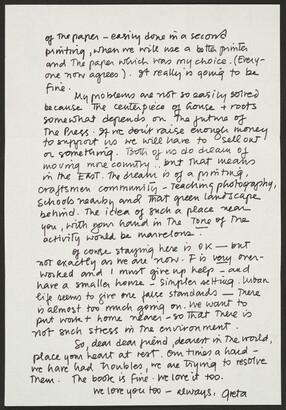 of the paper – easily done in a second
printing, when we will use a better printer
and the paper which was my choice. (Every-
one now agrees). It really is going to be
fine.
My problems are not so easily solved
because the centerpiece of house + roots
somewhat depends on the future of
The Press. If we don't raise enough money
to support us we will have to sell out
or something. Both of us do dream of
moving more country.. but that means
in the East. The dream is of a printing,
craftsmen community – teaching photography,
schools nearby and that green landscape
behind. The idea of such a place near
you, with your hand in the Tone of the
activity would be marvelous.
Of course staying here is OK — but
not exactly as we are now. F is very over-
worked and I must give up help – and
have a smaller house – simpler setting. Urban
life seems to give one false standards — There
is almost too much going on. We want to
put work + home nearer – so that there is
not such stress in the environment.
So, dear dear friend, dearest in the world,
place your heart at rest. Our times a hard –
we have had troubles, we are trying to resolve
them. The book is fine. We love it too.
We love you too – always, Greta